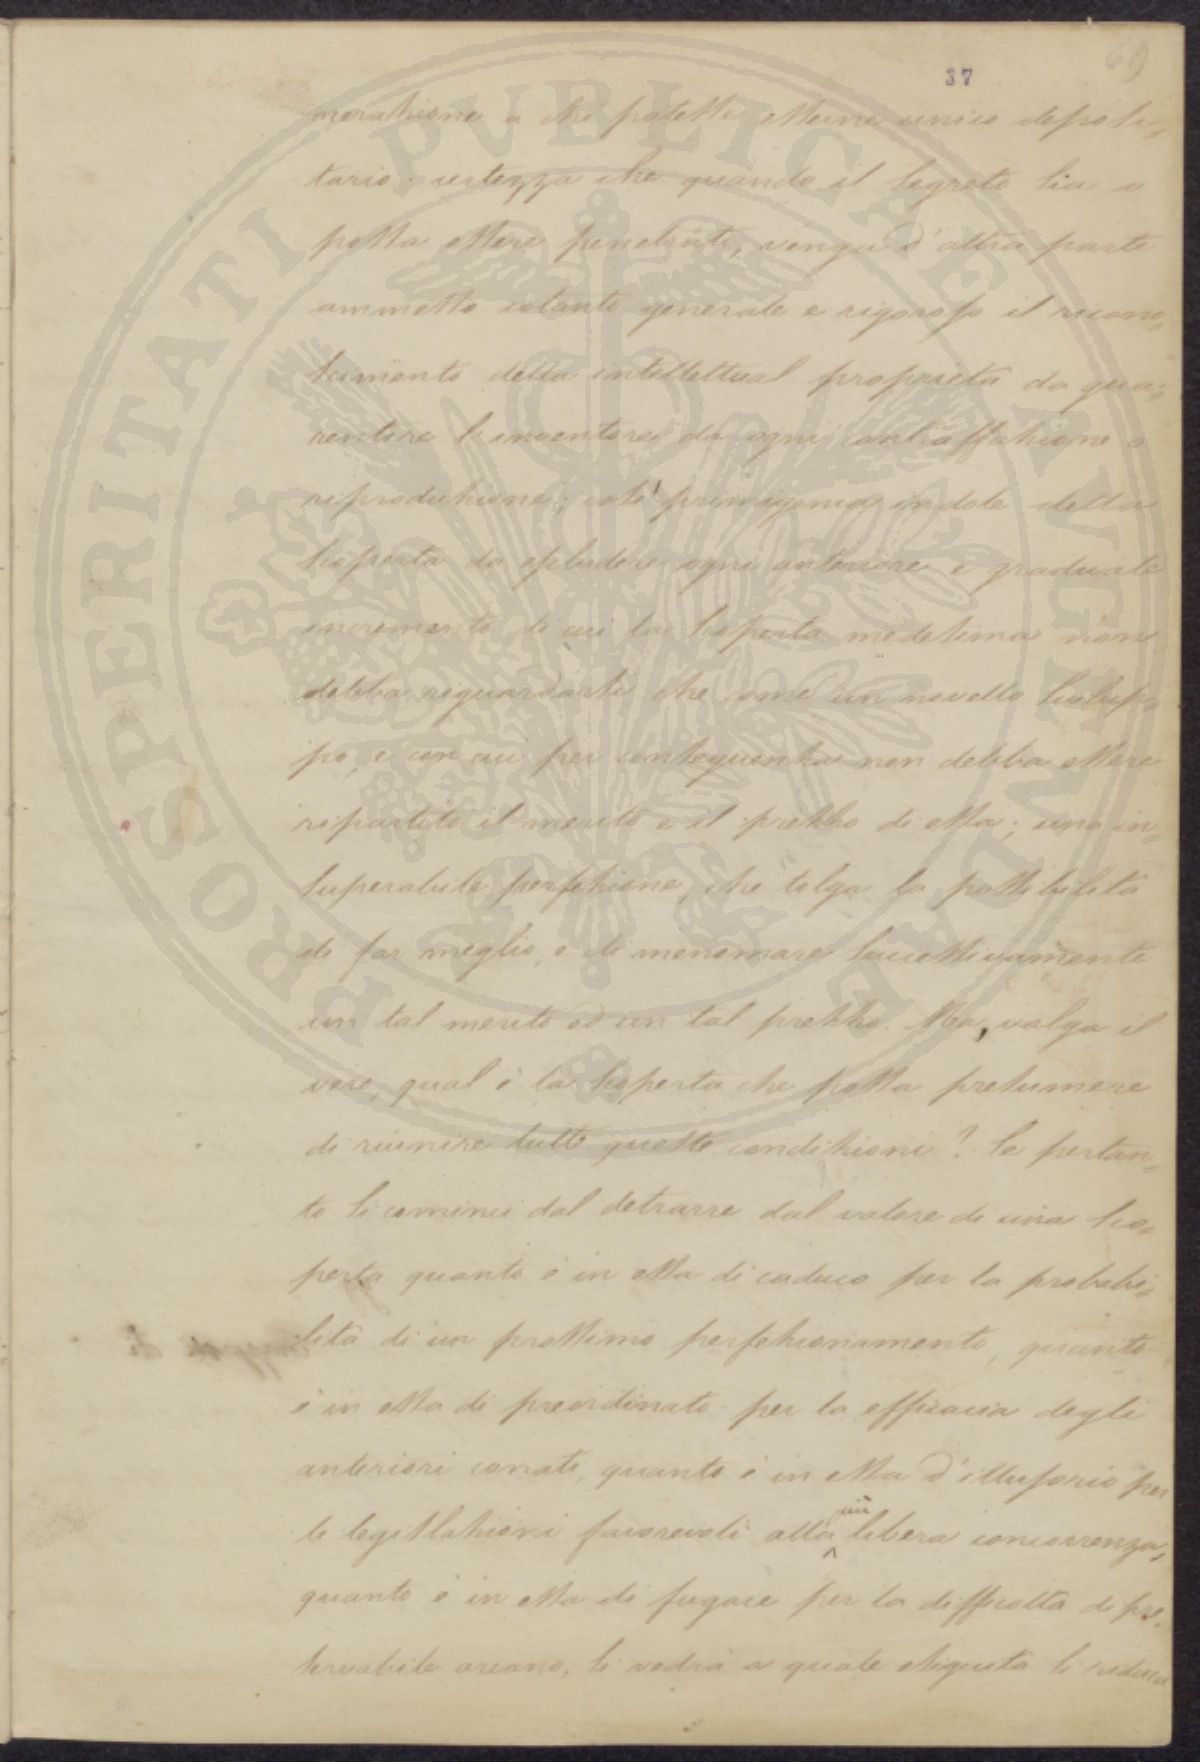 69
37
morazione a chi potesse esserne unico deposi=
tario; certezza che quando il segreto sia o
possa essere penetrato, venga d'altra parte
ammesso cotanto generale e rigoroso il ricono=
scimento della intellettual proprietà da gua=
rentire l'inventore da ogni contraffazione o
riproduzione; così primigenia indole della
scoperta da escludere ogni anteriore e graduale
incremento di cui la scoperta medesima non
debba riguardarsi che come un novello svilup=
po, e con cui per conseguenza non debba essere
ripartito il merito e il prezzo di essa; una in=
superabile perfezione, che tolga la possibilità
di far meglio, e di menomare successivamente
un tal merito ed un tal prezzo. Ma, valga il
vero, qual è la scoperta che possa presumere
di riunire tutte queste condizioni? Se pertan=
to si cominci dal detrarre dal valore di una sco=
perta quanto è in essa di caduco per la probabi=
lità di un prossimo perfezionamento, quanto
è in essa di preordinato per la efficacia degli
anteriori conati, quanto è in essa d'illusorio per
le legislazioni favorevoli alla più libera concorrenza,
quanto è in essa di fugace per la difficoltà di pre=
servabile arcano, si vedrà a quale esiguità si riduca
PROSPERITATI PVBLICAE AVGENDAE